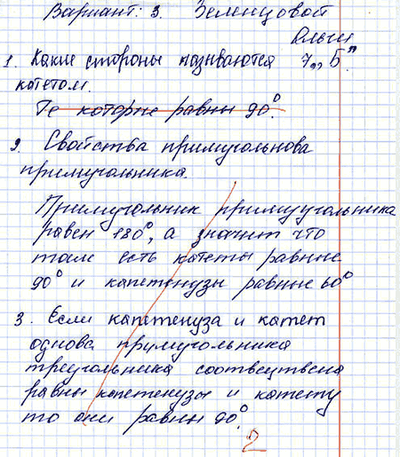 Вариант: 3. Зеленцовой
Ольги
1. Какие стороны называются 7„Б"
катетом.
Те которые равны 90°.
2. Свойства примугольнова
примугольника.
Примугольник примуугольника
равен 180°, а значит что
там есть катеты равные
90° и капетенузы равные 60°
3. Если капетенуза и катет
однова примугольника
треугольника соотвецтвено
равны капетенузы и катету
то они равны 90°.
2